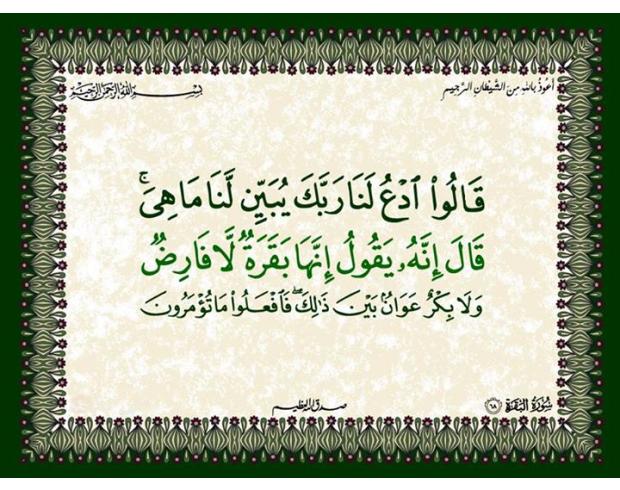 أعوذ بالله من الشيطان الرجيم
بسم الله الرحمن الرحيم
قَالُوا۟ ٱدْعُ لَنَا رَبَّكَ يُبَيِّن لَّنَا مَا هِىَ ۚ
قَالَ إِنَّهُۥ يَقُولُ إِنَّهَا بَقَرَةٌ لَّا فَارِضٌ
وَلَا بِكْرٌ عَوَانٌۢ بَيْنَ ذَٰلِكَ ۖ فَٱفْعَلُوا۟ مَا تُؤْمَرُونَ
سورة البقرة ٦٨
صدق الله العظيم